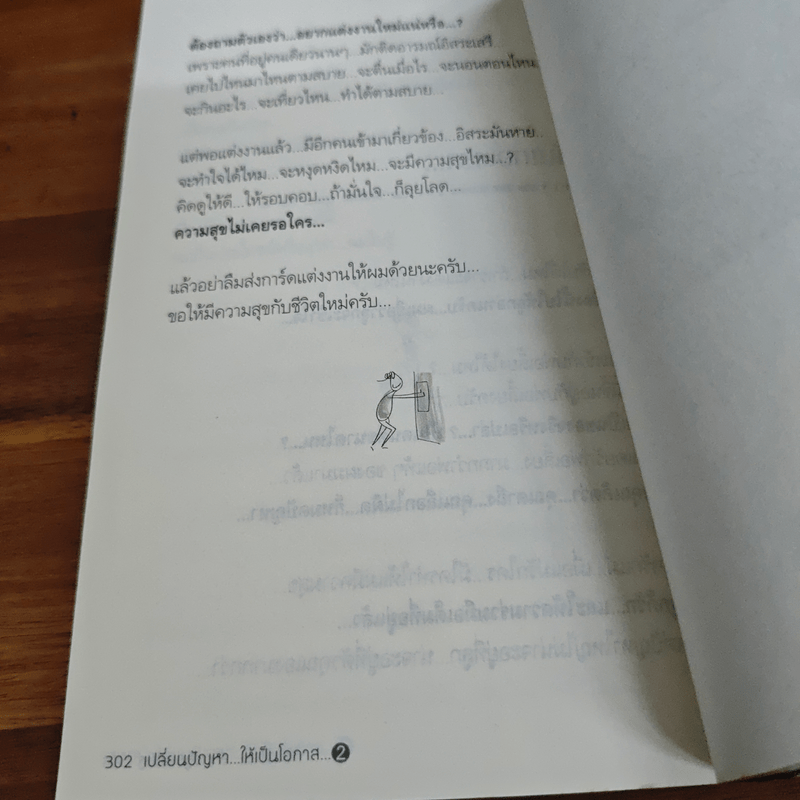 ต้องถามตัวเองว่า...อยากแต่งงานใหม่แน่หรือ...?
เพราะคนที่อยู่คนเดียวนานๆ มักติดอารมณ์อิสระเสรี
เคยไปไหนมาไหนตามสบาย...จะตื่นเมื่อไร...จะนอนตอนไหน
จะกินอะไร...จะเที่ยวไหน...ทำได้ตามสบาย...
แต่พอแต่งงานแล้ว...มีอีกคนเข้ามาเกี่ยวข้อง...อิสระมันหาย...
จะทำใจได้ไหม...จะหงุดหงิดไหม...จะมีความสุขไหม...?
คิดดูให้ดี...ให้รอบคอบ...ถ้ามั่นใจ...ก็ลุยโลด...
ความสุขไม่เคยรอใคร...
แล้วอย่าลืมส่งการ์ดแต่งงานให้ผมด้วยนะครับ...
ขอให้มีความสุขกับชีวิตใหม่ครับ...
302 เปลี่ยนปัญหา...ให้เป็นโอกาส...2